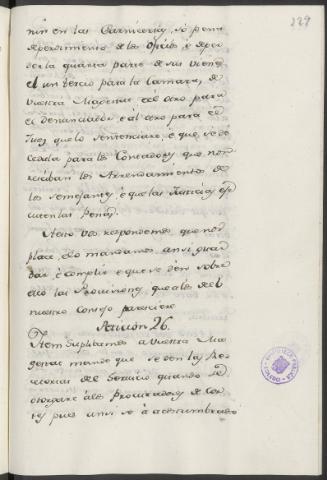 229
nin en las Carnicerias, so pena
de perdimiento de los Oficios é de per
der la quarta parte de sus vienes
el un tercio para la Camara de
Vuestra Magestad é al otro para
el denunciador é al otro para el
Juez que lo sentenciare, é que se dé
Cedula para los Contadores que non
reciban los Arrendamientos de
los semejantes, é que las Justicias exe
cuten las Penas.
A esto vos respondemos que nos
place, é lo mandamos ansi guar
dar é complir é que se den sobre
ello las Provisiones, quales del
nuestro Consejo paresciere
Peticion 26.
Item Suplicamos a Vuestra Ma
gestad mande que se den las Re
ceptorias del Servicio quando se
otorgare á los Procuradores de Cor
tes pues ansi se á acostumbrado